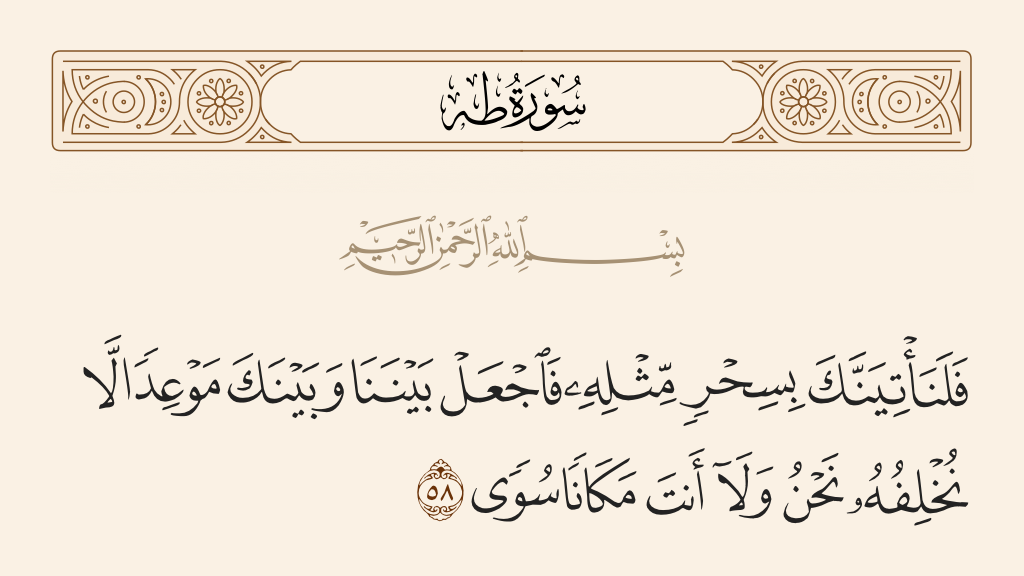 سُورَةُ طه
بِسْمِ ٱللَّهِ ٱلرَّحْمَٰنِ ٱلرَّحِيمِ
فَلَنَأْتِيَنَّكَ بِسِحْرٍ مِّثْلِهِۦ فَٱجْعَلْ بَيْنَنَا وَبَيْنَكَ مَوْعِدًا لَّا
نُخْلِفُهُۥ نَحْنُ وَلَآ أَنتَ مَكَانًا سُوًى ٥٨